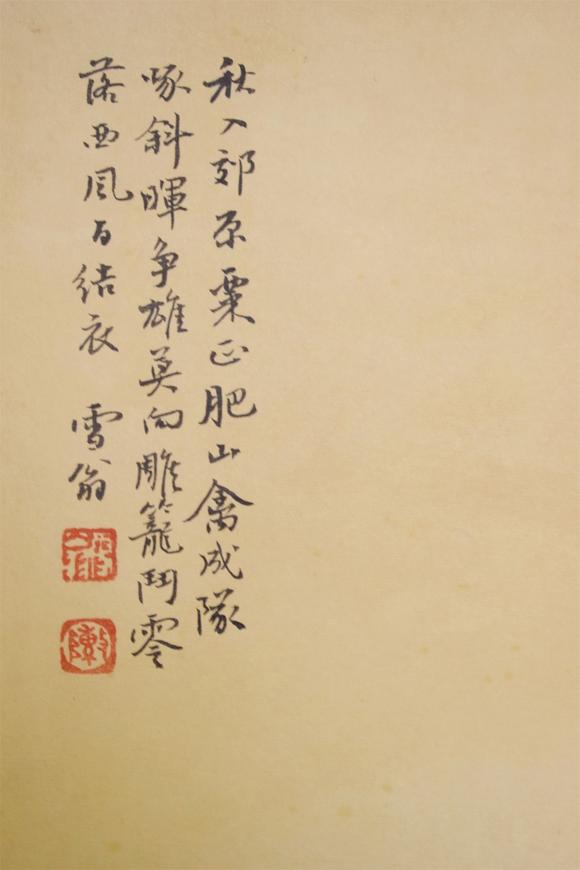 秋入郊原粟正肥山禽成隊
啄斜暉争雄莫向雕籠鬥零
落西風百結衣 雪翁
陳